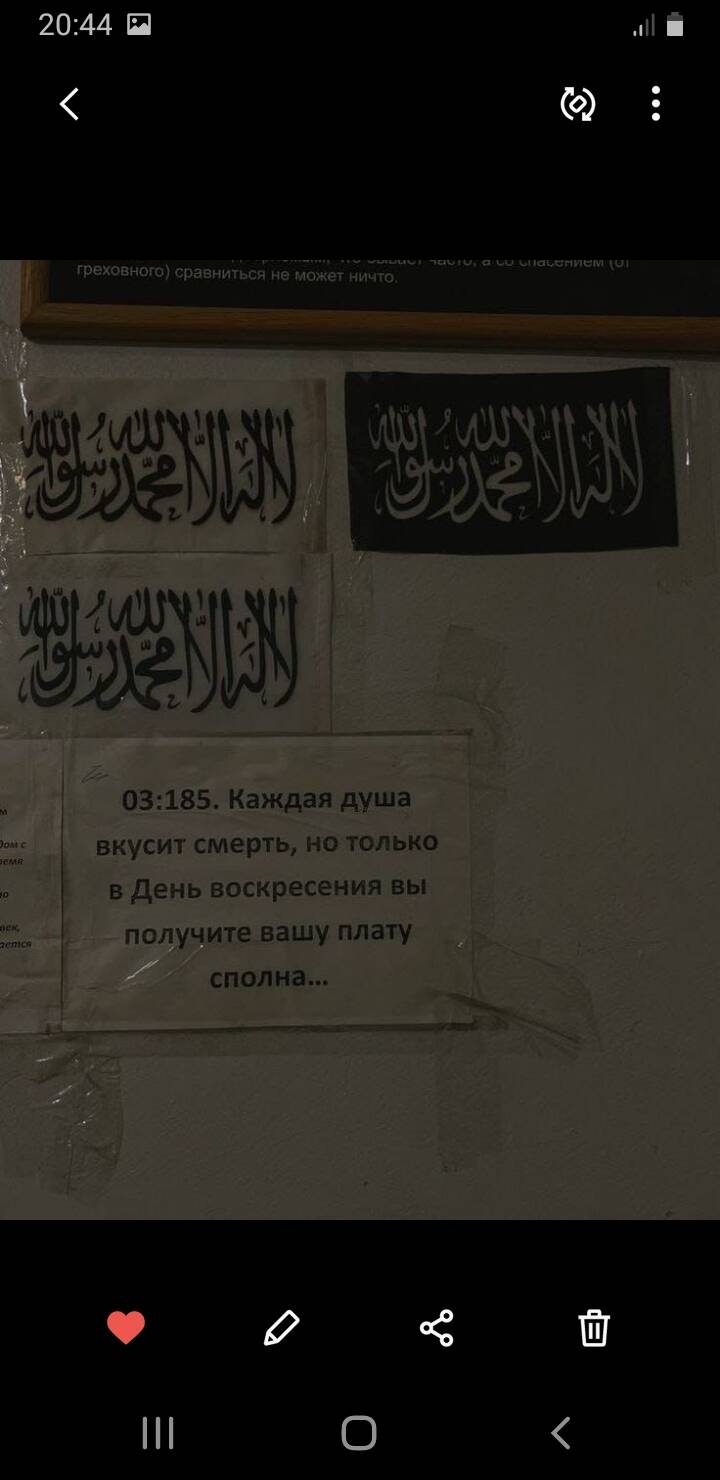 20:44
греховного) сравниться не может ничто.
لا إله إلا الله محمد رسول الله
لا إله إلا الله محمد رسول الله
لا إله إلا الله محمد رسول الله
03:185. Каждая душа
вкусит смерть, но только
в День воскресения вы
получите вашу плату
сполна...